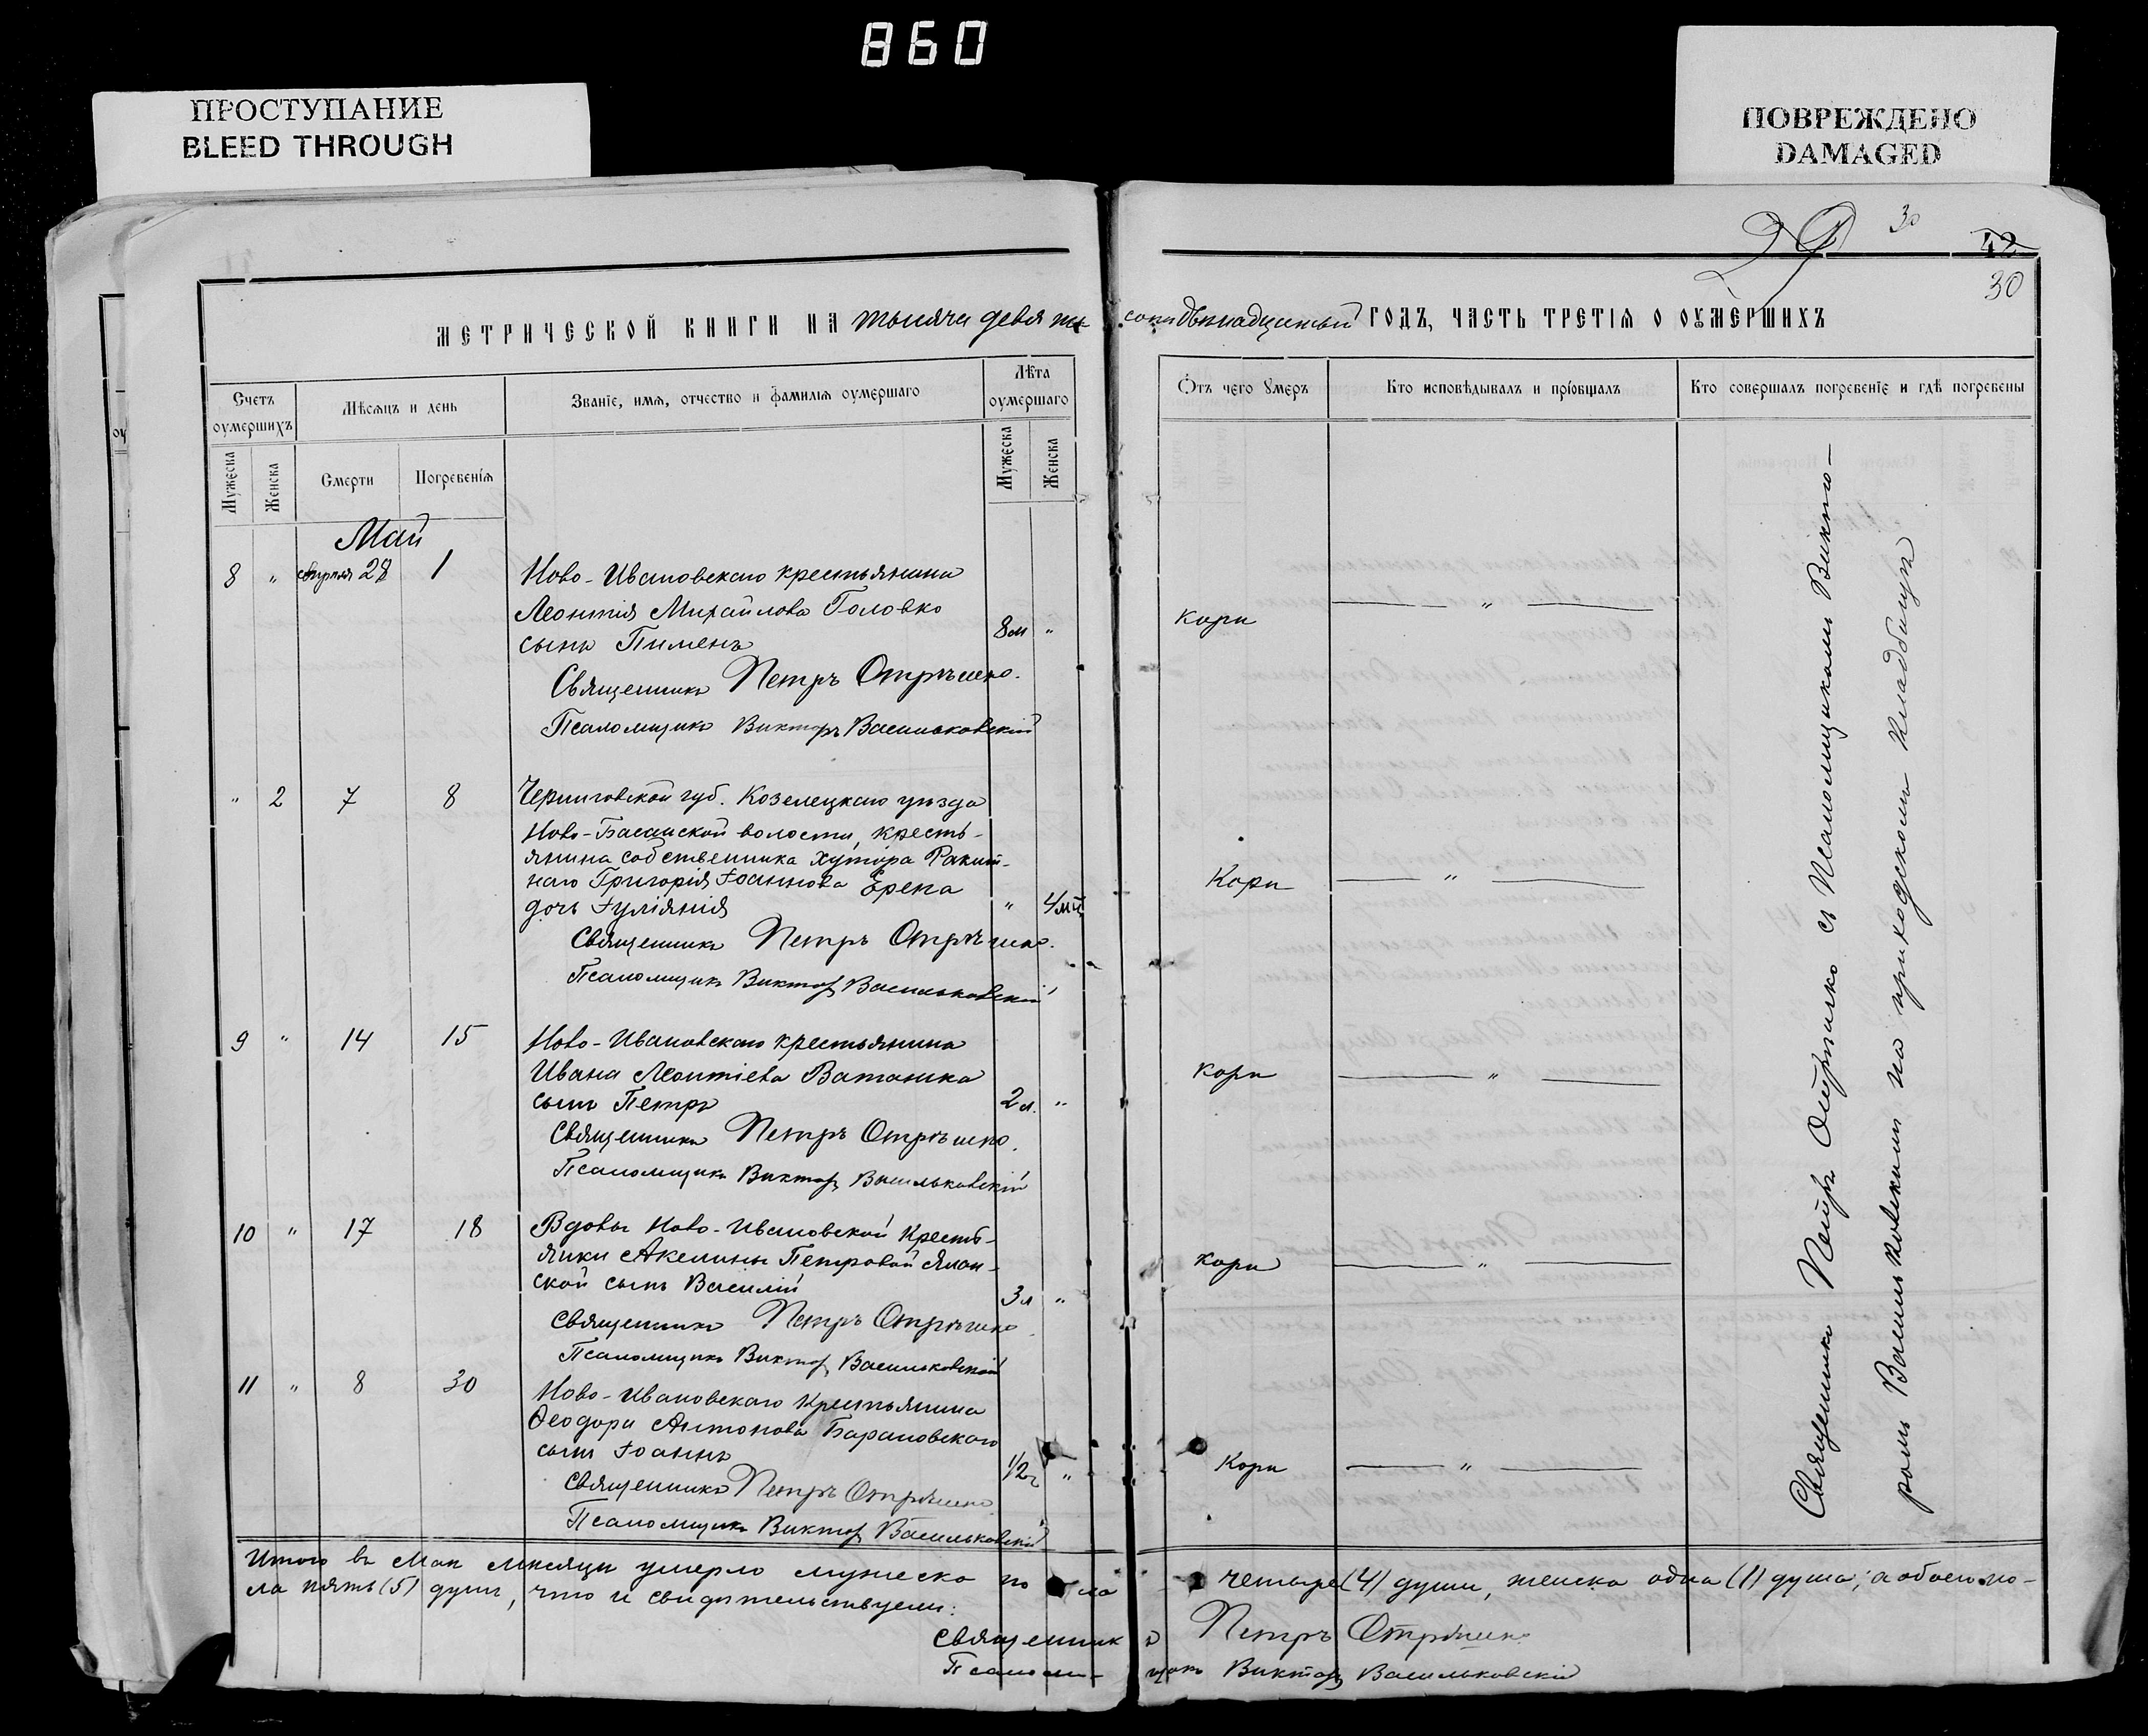 860
ПРОСТУПАНИЕ
BLEED THROUGH
ПОВРЕЖДЕНО
DAMAGED
29
30
42
30
МЕТРИЧЕСКОЙ КНИГИ НА тысяча девять сотъ двѣнадцатый ГОДЪ, ЧАСТЬ ТРЕТІЯ О ОУМЕРШИХЪ
Счетъ оумершихъ
Мѣсяцъ и день
Званіе, имя, отчество и фамилія оумершаго
Лѣта оумершаго
Отъ чего умеръ
Кто исповѣдывалъ и пріобщалъ
Кто совершалъ погребеніе и гдѣ погребены
Мужеска
Женска
Смерти
Погребенія
Мужеска
Женска
Май
8 " апрѣля 28 1 Ново-Ивановскаго крестьянина
Леонтія Михайлова Головко
сынъ Пименъ 8 м " Кори — " —
Священникъ Петръ Отрѣшко.
Псаломщикъ Викторъ Васильковскій
" 2 7 8 Черниговской губ. Козелецкаго уѣзда
Ново-Басанской волости, кресть-
янина собственника хутора Ракит-
наго Григорія Іоаннова Ерека
дочь Іуліянія " 4 м Кори — " —
Священникъ Петръ Отрѣшко.
Псаломщикъ Викторъ Васильковскій
9 " 14 15 Ново-Ивановскаго крестьянина
Ивана Леонтіева Ватаника
сынъ Петръ 2 л. " Кори — " —
Священникъ Петръ Отрѣшко.
Псаломщикъ Викторъ Васильковскій
10 " 17 18 Вдовы Ново-Ивановской кресть-
янки Акелины Петровой Ялан-
ской сынъ Василій 3 л " Кори — " —
Священникъ Петръ Отрѣшко
Псаломщикъ Викторъ Васильковскій
11 " 8 30 Ново-Ивановскаго крестьянина
Ѳеодора Антонова Барановскаго
сынъ Іоаннъ 1/2 г " Кори — " —
Священникъ Петръ Отрѣшко
Псаломщикъ Викторъ Васильковскій
Священникъ Петръ Отрѣшко съ Псаломщикомъ Викто-
ромъ Васильковскимъ на приходскомъ кладбищѣ
Итого въ Маѣ мѣсяцѣ умерло мужеска пола четыре (4) души, женска одна (1) душа; а обоего по-
ла пять (5) душъ, что и свидѣтельствуемъ:
Священникъ Петръ Отрѣшко
Псаломщикъ Викторъ Васильковскій